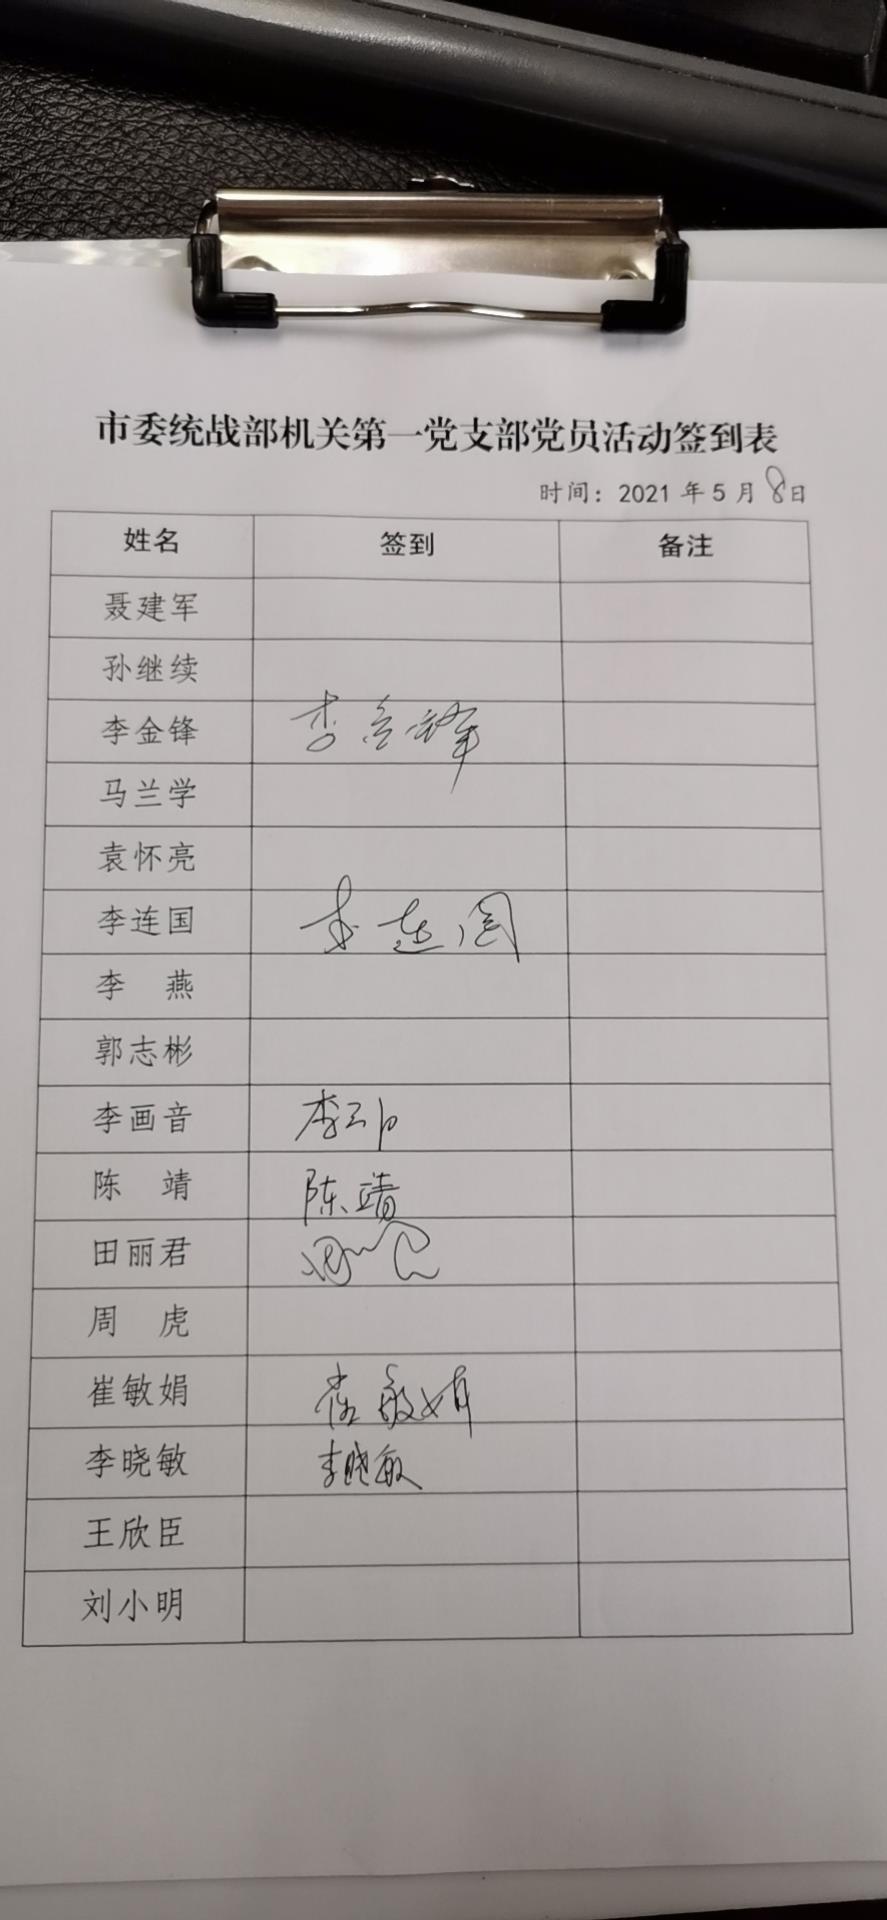 市委统战部机关第一党支部党员活动签到表
时间：2021 年 5 月 8 日
姓名 签到 备注
聂建军
孙继续
李金锋 李金锋
马兰学
袁怀亮
李连国 李连国
李 燕
郭志彬
李画音 李
陈 靖 陈靖
田丽君
周 虎
崔敏娟 崔敏娟
李晓敏 李晓敏
王欣臣
刘小明